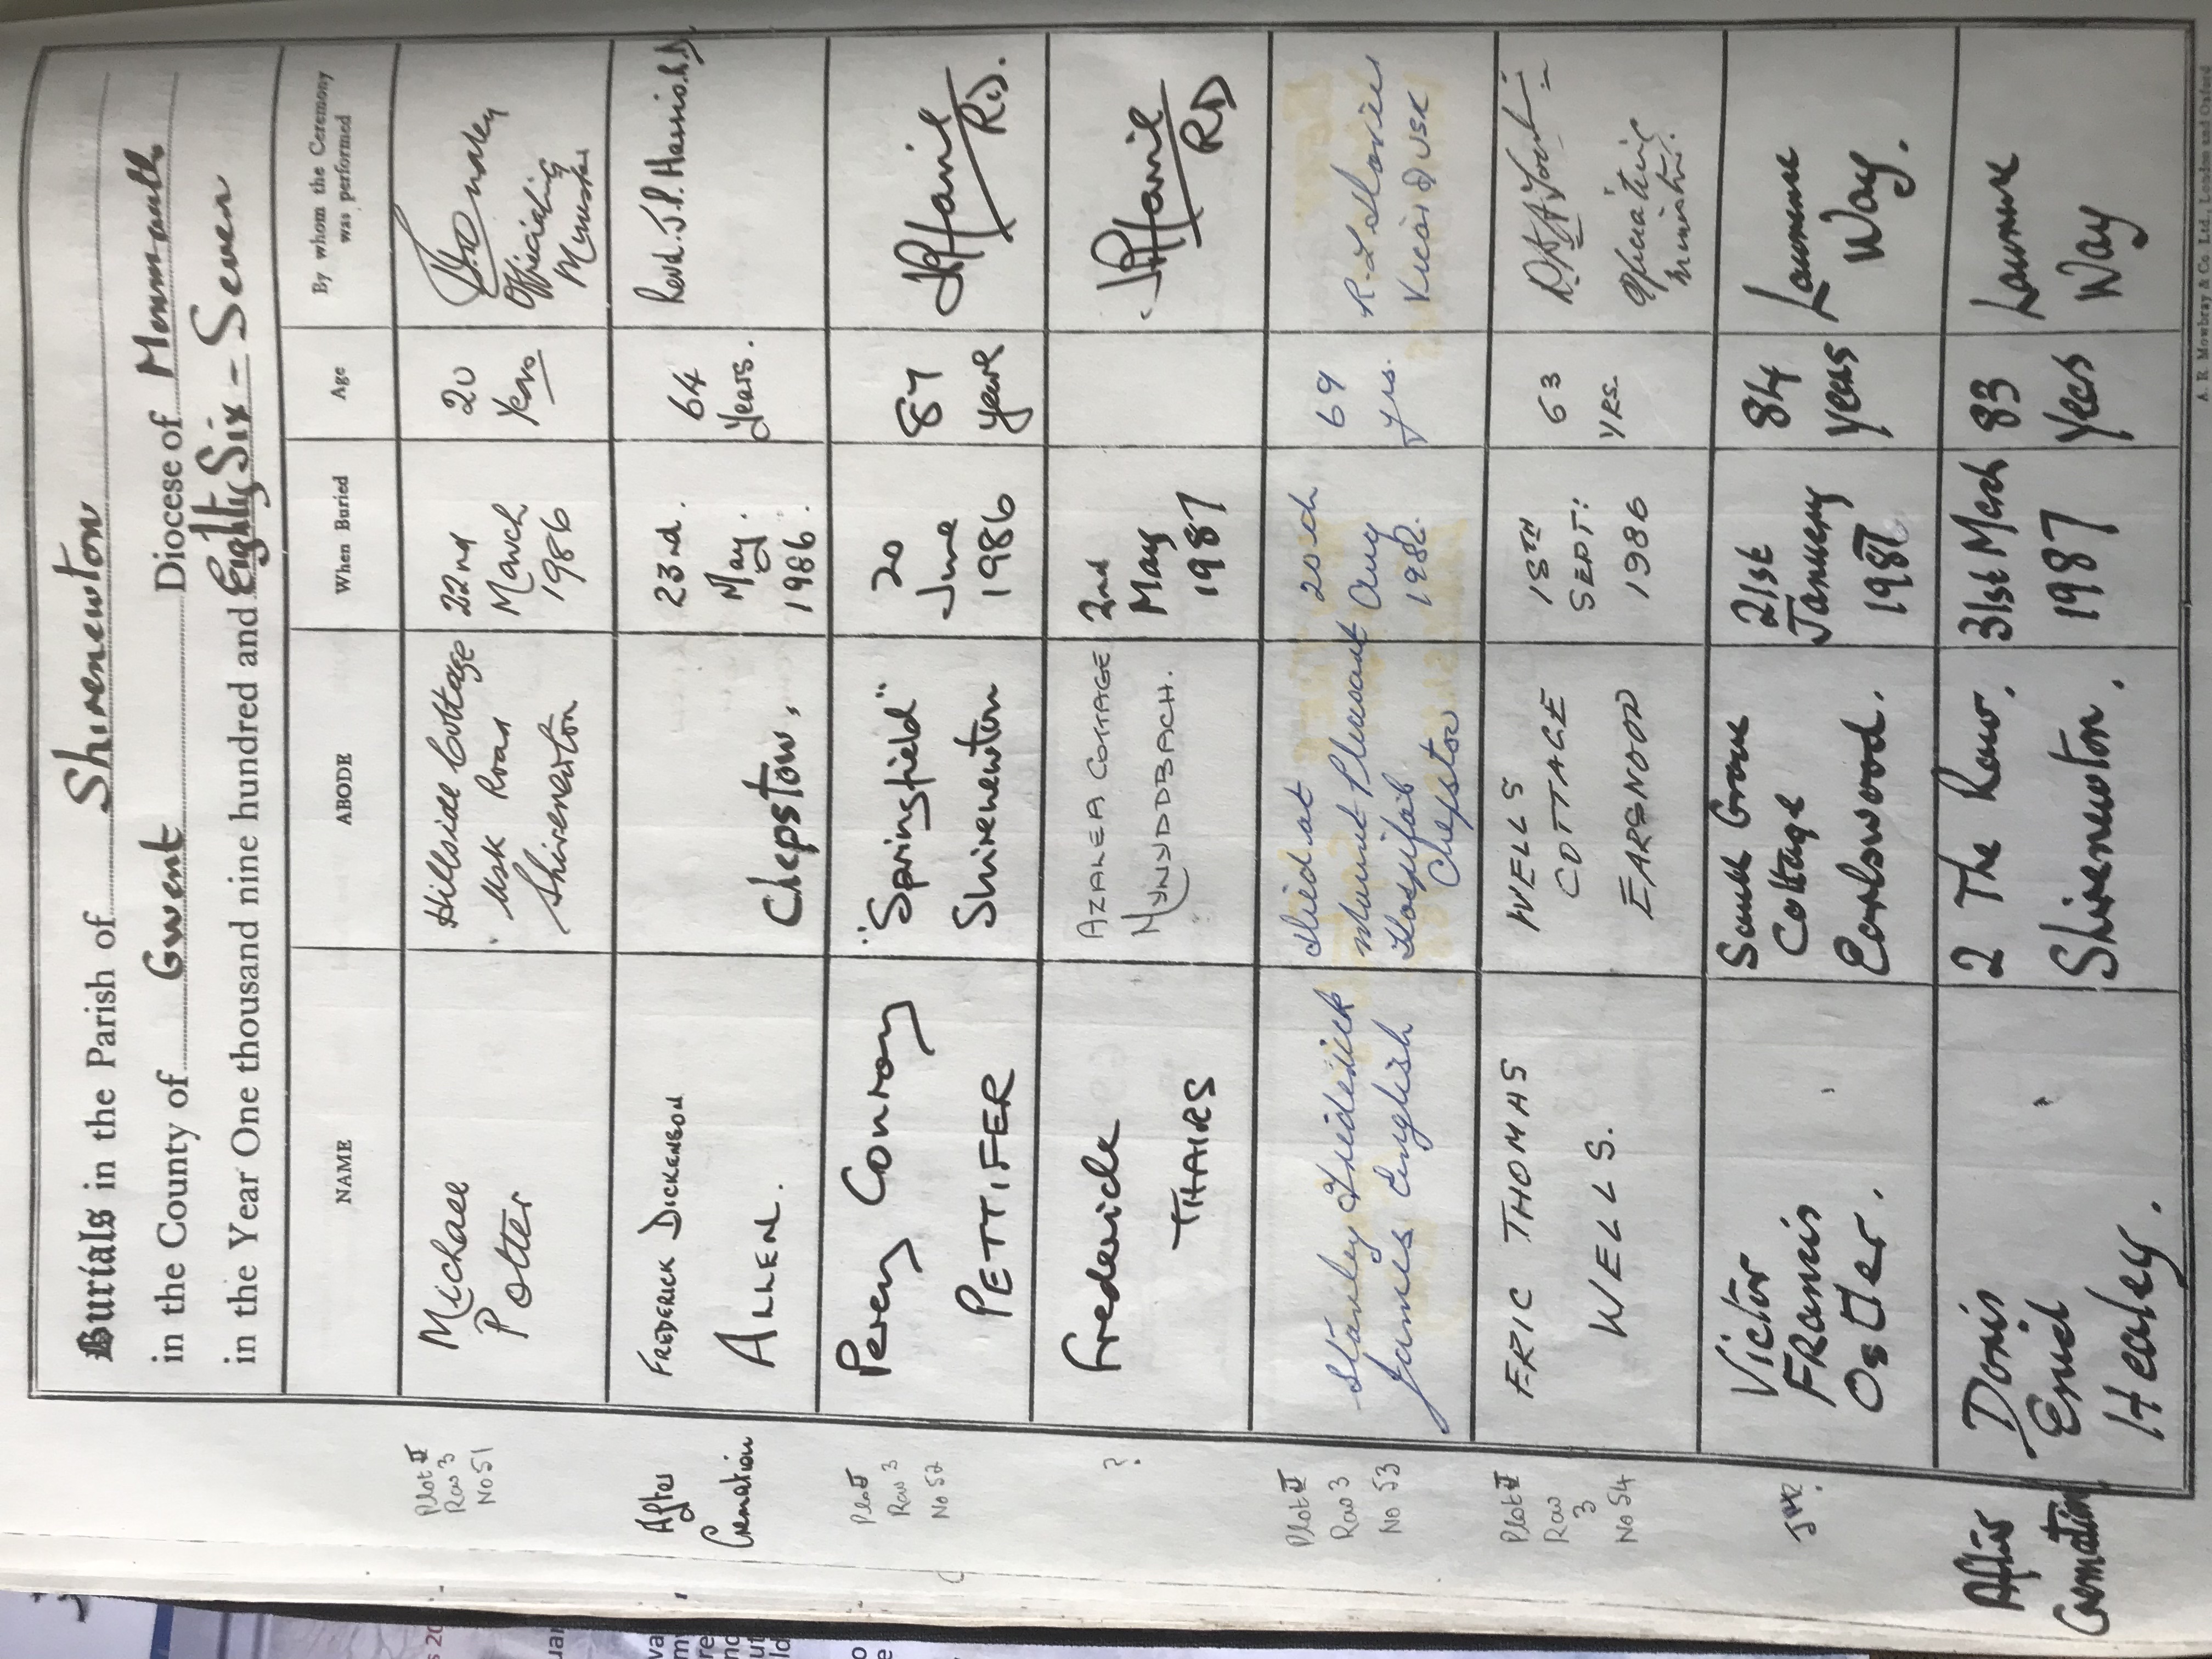 Burials in the Parish of Shirenewton
in the County of Gwent Diocese of Monmouth
in the Year One thousand nine hundred and Eighty Six - Seven
NAME ABODE When Buried Age By whom the Ceremony
was performed
Plot II
Row 3
No 51
Michael
Potter
Hillside Cottage
Usk Road
Shirenewton
22nd
March
1986
20
Years
Officiating
Minister
After
Cremation
FREDERICK DICKENSON
ALLEN.
Chepstow,
23rd.
May.
1986.
64
Years.
Revd. J.P. Harris. R.D.
Plot II
Row 3
No 52
Percy Conroy
PETTIFER
"Springfield"
Shirenewton
20
June
1986
87
years
JP Harris
RD.
?
Frederick
THAIRS
AZALEA COTTAGE
MYNYDDBACH.
2nd
May
1987
JP Harris
RD
Plot II
Row 3
No 53
Stanley Frederick
James English
Died at
Mount Pleasant
Hospital
Chepstow
20th
Aug
1986.
69
yrs.
Vicar of USK
Plot II
Row
3
No 54
ERIC THOMAS
WELLS.
WELLS
COTTAGE
EARSWOOD
18TH
SEPT:
1986
63
YRS.
Officiating
Minister.
Victor
FRancis
Ostler.
South Grove
Cottage
Earlswood.
21st
January
1987
84
years
Lawrence
Way.
After
Cremation
Doris
Enid
Healey.
2 The Row.
Shirenewton.
31st March
1987
83
Years
Lawrence
Way
A. R. Mowbray & Co. Ltd., London and Oxford